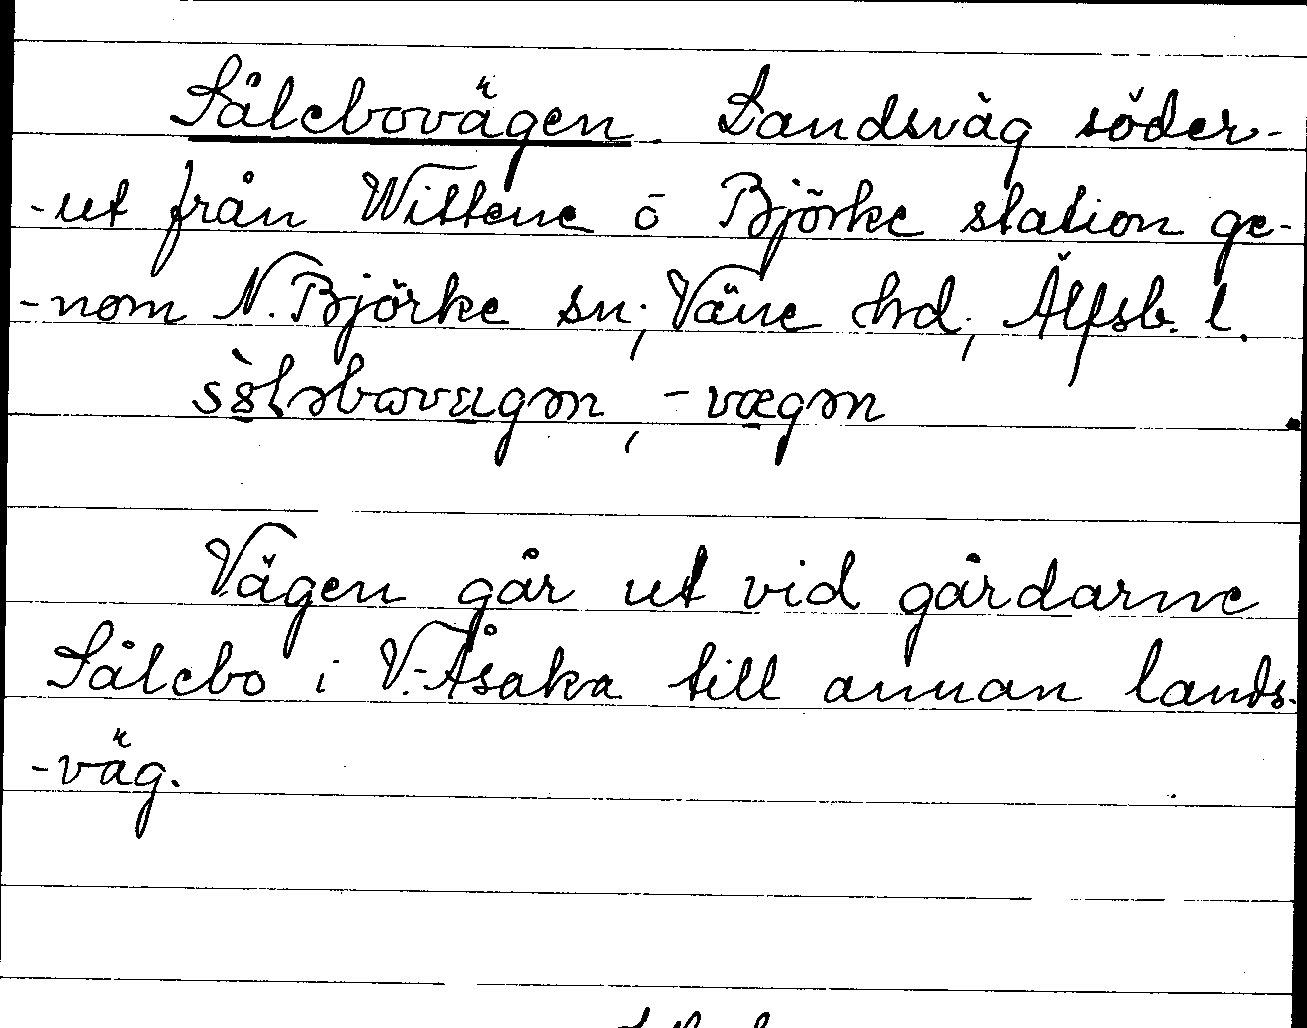 Sålebovägen. Landsväg söder-
-ut från Wittene ō Björke station ge-
-nom N. Björke sn; Väne hd, Älfsb. l.
Vägen går ut vid gårdarne
Sålebo i V.-Åsaka till annan lands-
-väg.